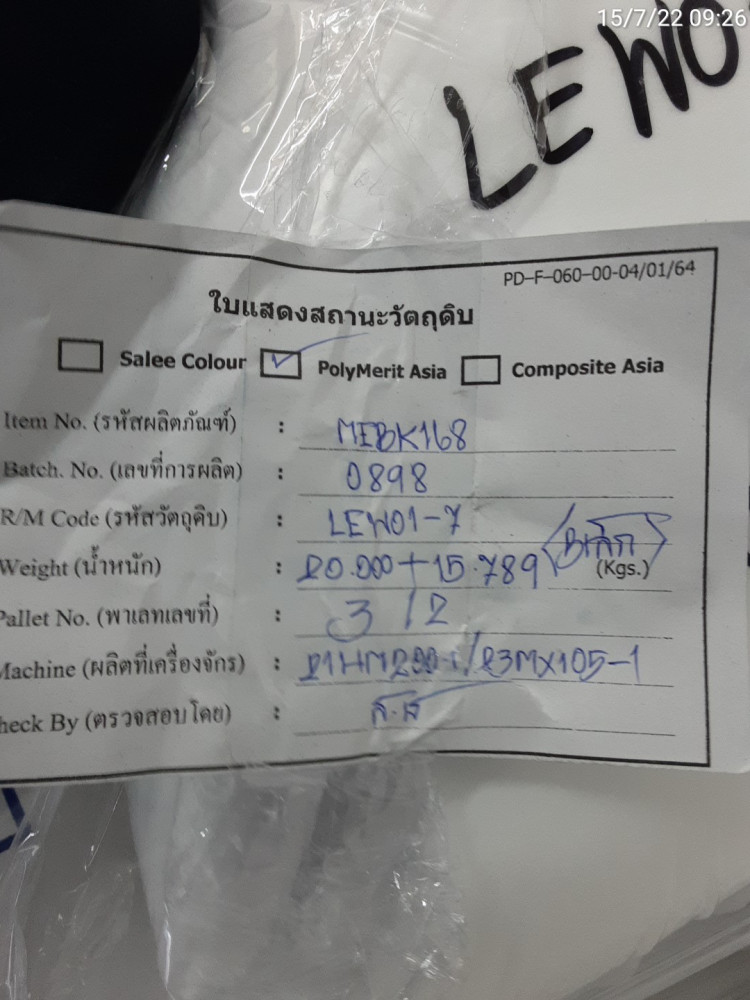 15/7/22 09:26
LEWO
PD-F-060-00-04/01/64
ใบแสดงสถานะวัตถุดิบ
Salee Colour PolyMerit Asia Composite Asia
Item No. (รหัสผลิตภัณฑ์) : MEBK168
Batch. No. (เลขที่การผลิต) : 0898
R/M Code (รหัสวัตถุดิบ) : LEW01-7
Weight (น้ำหนัก) : 20.000+15.789 (Kgs.)
Pallet No. (พาเลทเลขที่) : 3/2
Machine (ผลิตที่เครื่องจักร) : 23MX105-1
heck By (ตรวจสอบโดย) :